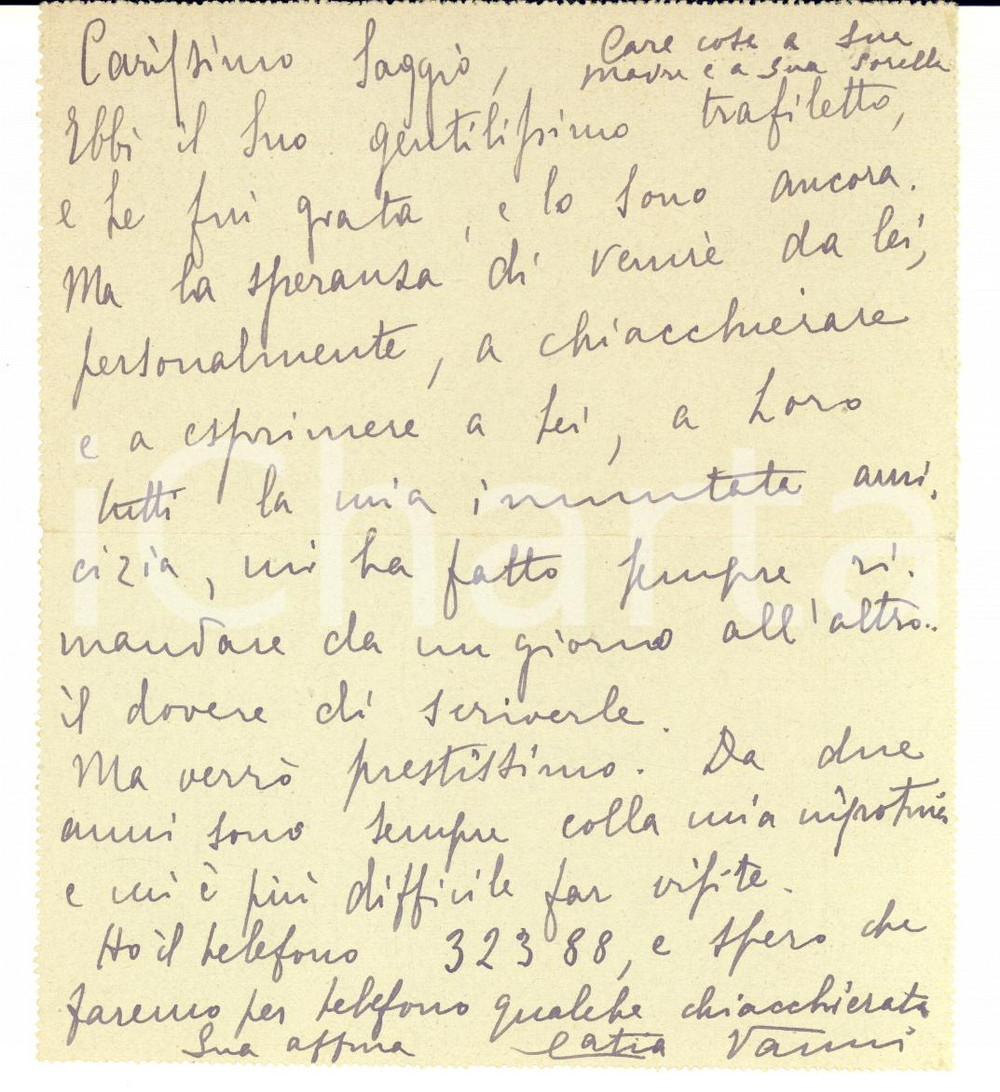 Carissimo Saggio,
Care cose a Sua
madre e a Sua Sorella
Ebbi il Suo gentilissimo trafiletto,
e Le fui grata, e lo sono ancora.
Ma la speranza di venire da lei,
personalmente, a chiacchierare
e a esprimere a Lei, a Loro
tutti la mia immutata ami.
cizia, mi ha fatto sempre ri.
mandare da un giorno all'altro..
il dovere di scriverle.
Ma verrò prestissimo. Da due
anni sono sempre colla mia nipotina
e mi è più difficile far visite.
Ho il telefono 32388, e spero che
faremo per telefono qualche chiacchierata
Sua affma Catia Vanni
iCharta